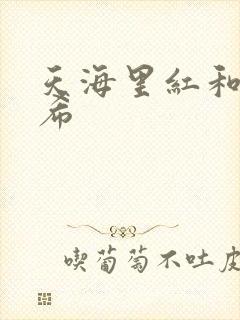 天海里紅和
希
喫葡萄不吐皮